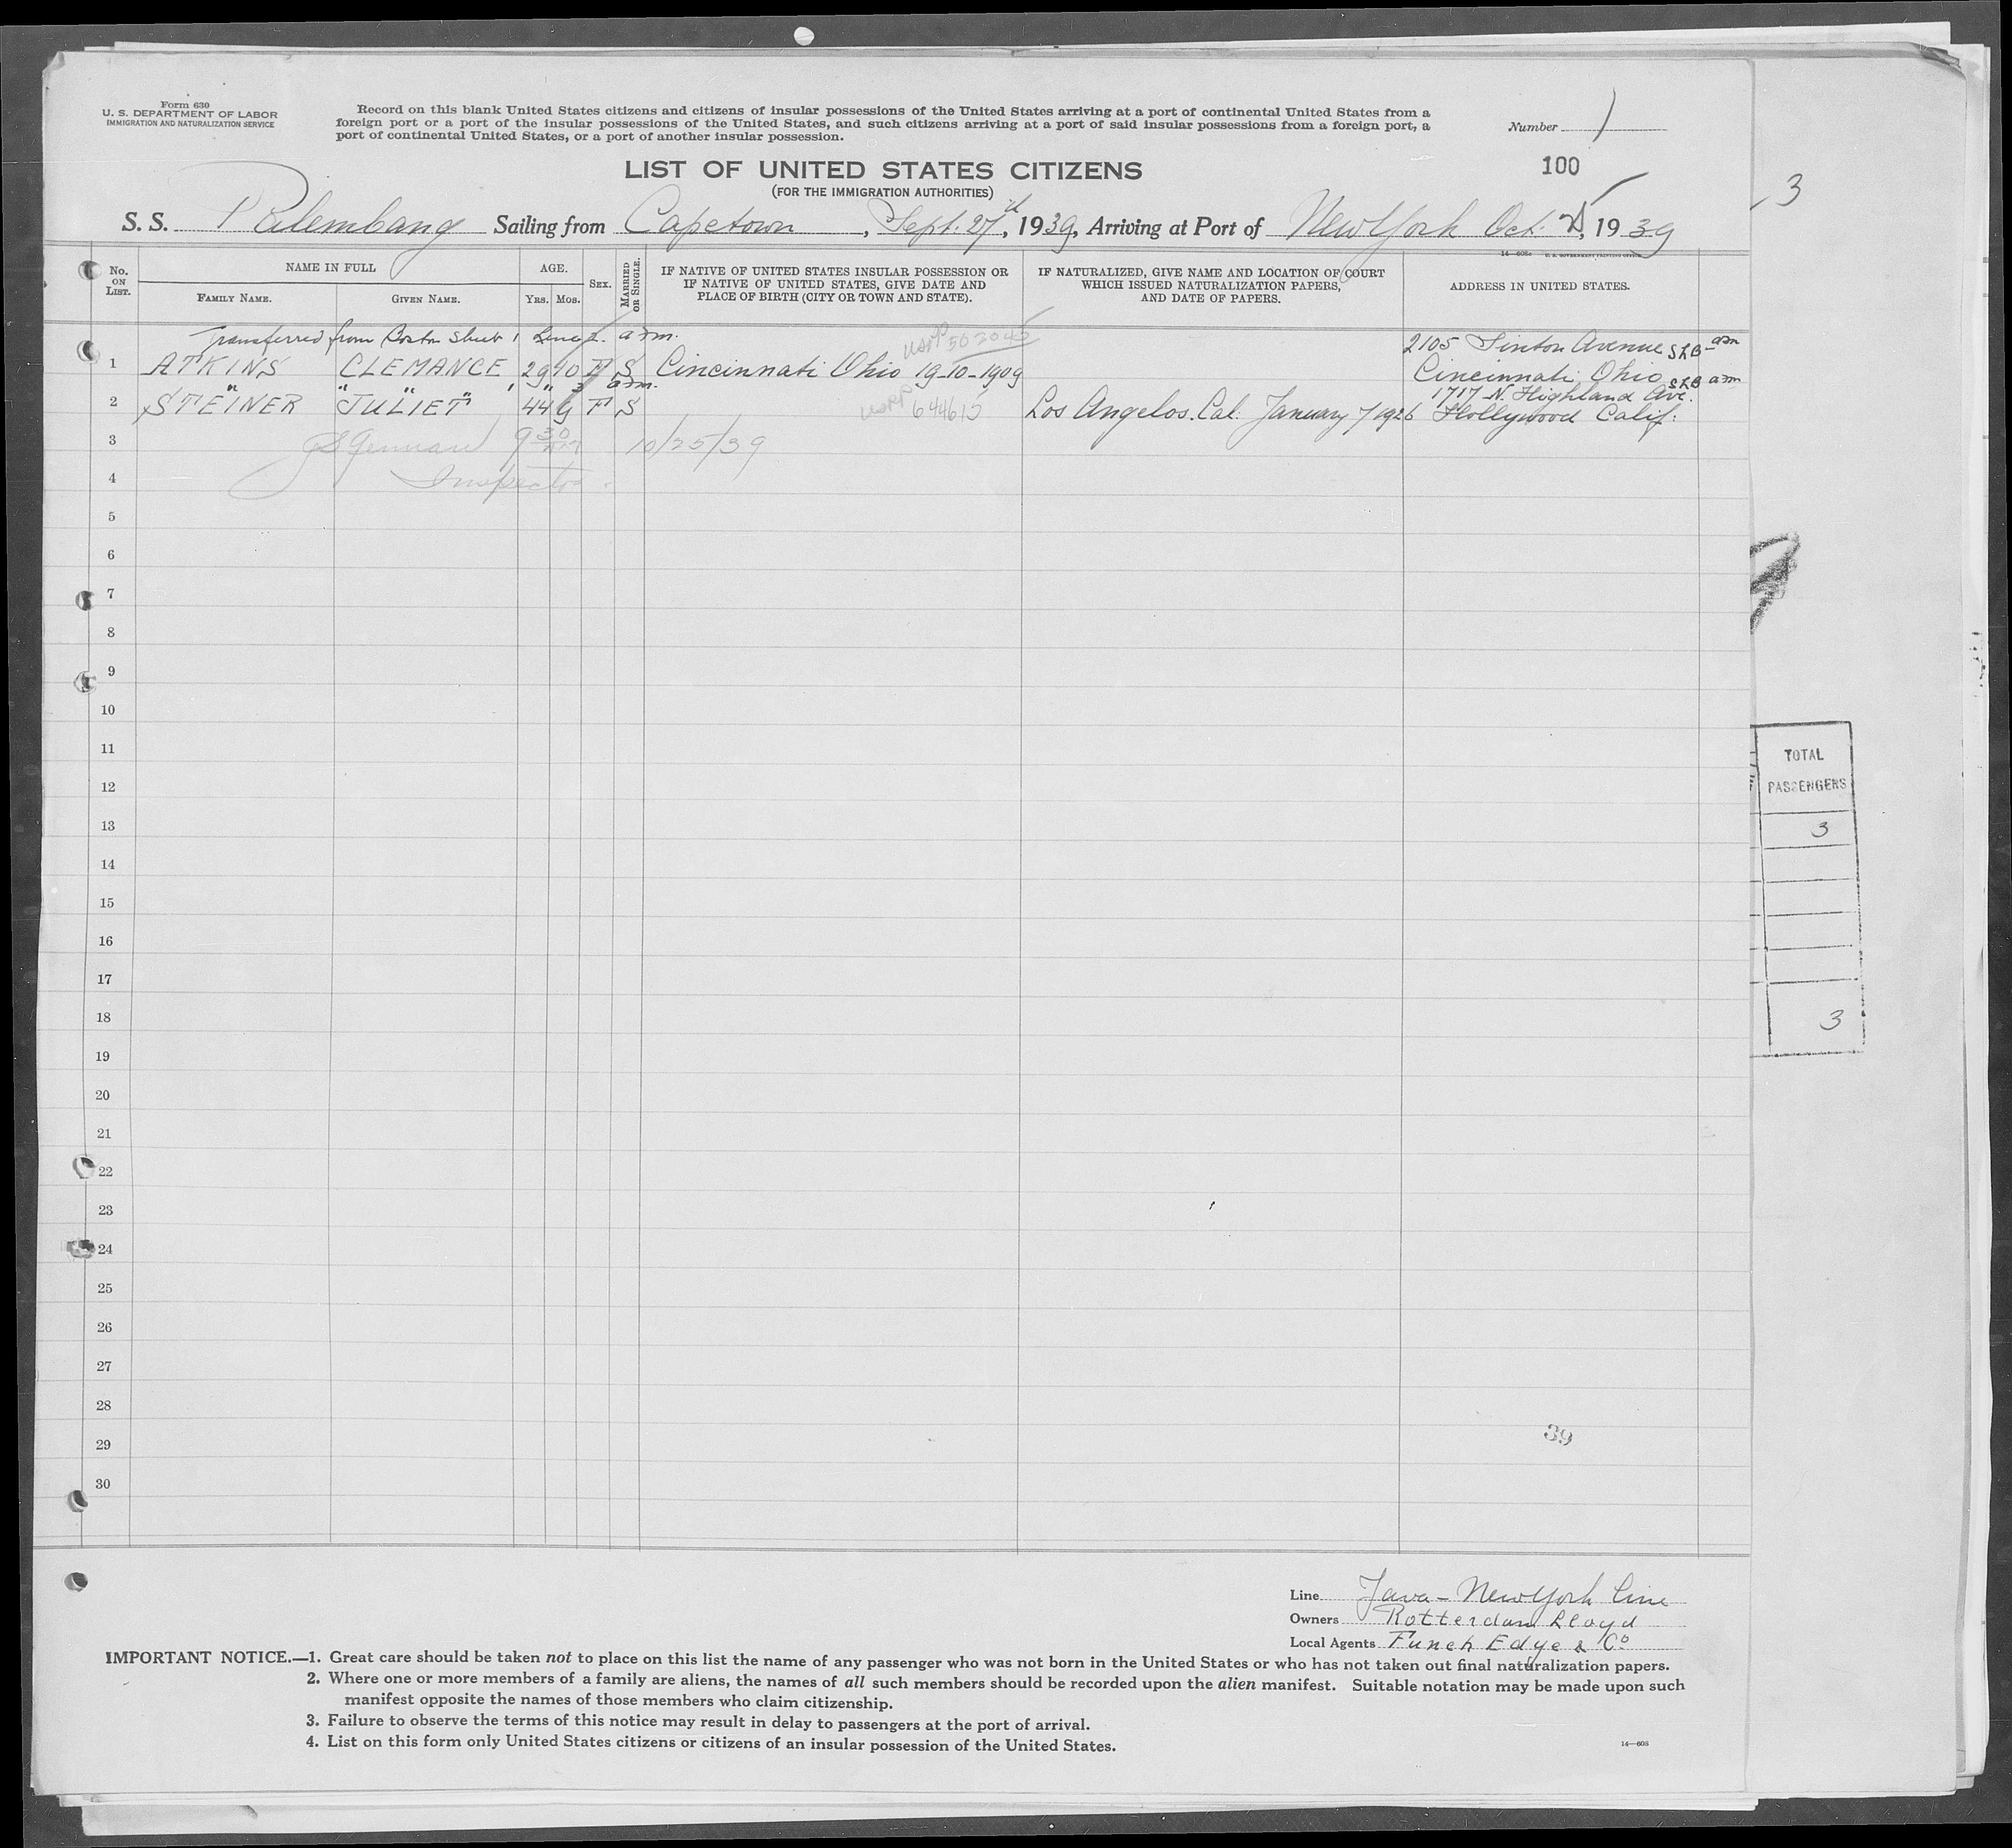 Form 630
U. S. DEPARTMENT OF LABOR
IMMIGRATION AND NATURALIZATION SERVICE
Record on this blank United States citizens and citizens of insular possessions of the United States arriving at a port of continental United States from a
foreign port or a port of the insular possessions of the United States, and such citizens arriving at a port of said insular possessions from a foreign port, a
port of continental United States, or a port of another insular possession.
Number 1
100
LIST OF UNITED STATES CITIZENS
(FOR THE IMMIGRATION AUTHORITIES)
3
S. S. Palembang Sailing from Capetown, Sept. 27th, 1939, Arriving at Port of New York Oct. 1939
14—608a U. S. GOVERNMENT PRINTING OFFICE
No. ON LIST. NAME IN FULL AGE. SEX. MARRIED OR SINGLE. IF NATIVE OF UNITED STATES INSULAR POSSESSION OR IF NATIVE OF UNITED STATES, GIVE DATE AND PLACE OF BIRTH (CITY OR TOWN AND STATE). IF NATURALIZED, GIVE NAME AND LOCATION OF COURT WHICH ISSUED NATURALIZATION PAPERS, AND DATE OF PAPERS. ADDRESS IN UNITED STATES.
FAMILY NAME. GIVEN NAME. YRS. MOS.
Transferred from Boston Sheet 1 Line 2. adm.
USPP 502042
2105 Sinton Avenue SLB adm
1 ATKINS CLEMANCE 29 10 F S Cincinnati Ohio 19-10-1909 Cincinnati Ohio SLB adm
" " " " 3 adm.
1717 N. Highland Ave.
2 STEINER JULIET 44 9 F S USPP 644615 Los Angelos. Cal. January 7 1926 Hollywood Calif.
3 9 30 10/25/39
4 Inspector
5
6
7
8
9
10
11
12
13
14
15
16
17
18
19
20
21
22
23
24
25
26
27
28
29
30
TOTAL
PASSENGERS
3
3
39
Line Java-New York Line
Owners Rotterdam Lloyd
Local Agents Funch Edye & Co
IMPORTANT NOTICE.—1. Great care should be taken not to place on this list the name of any passenger who was not born in the United States or who has not taken out final naturalization papers.
2. Where one or more members of a family are aliens, the names of all such members should be recorded upon the alien manifest. Suitable notation may be made upon such
manifest opposite the names of those members who claim citizenship.
3. Failure to observe the terms of this notice may result in delay to passengers at the port of arrival.
4. List on this form only United States citizens or citizens of an insular possession of the United States.
14—608